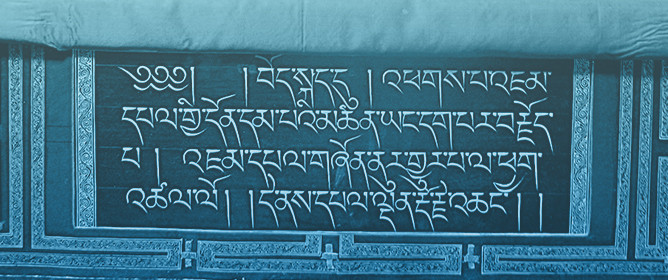 ༄༅༅། །བོད་སྐད་དུ །འཕགས་པ་འཇམ་
དཔལ་གྱི་དོན་དམ་པའི་མཚན་ཡང་དག་པར་བརྗོད་
པ། འཇམ་དཔལ་གཞོན་ནུར་གྱུར་པ་ལ་ཕྱག་
འཚལ་ལོ། །དེ་ནས་དཔལ་ལྡན་རྡོ་རྗེ་འཆང་། །